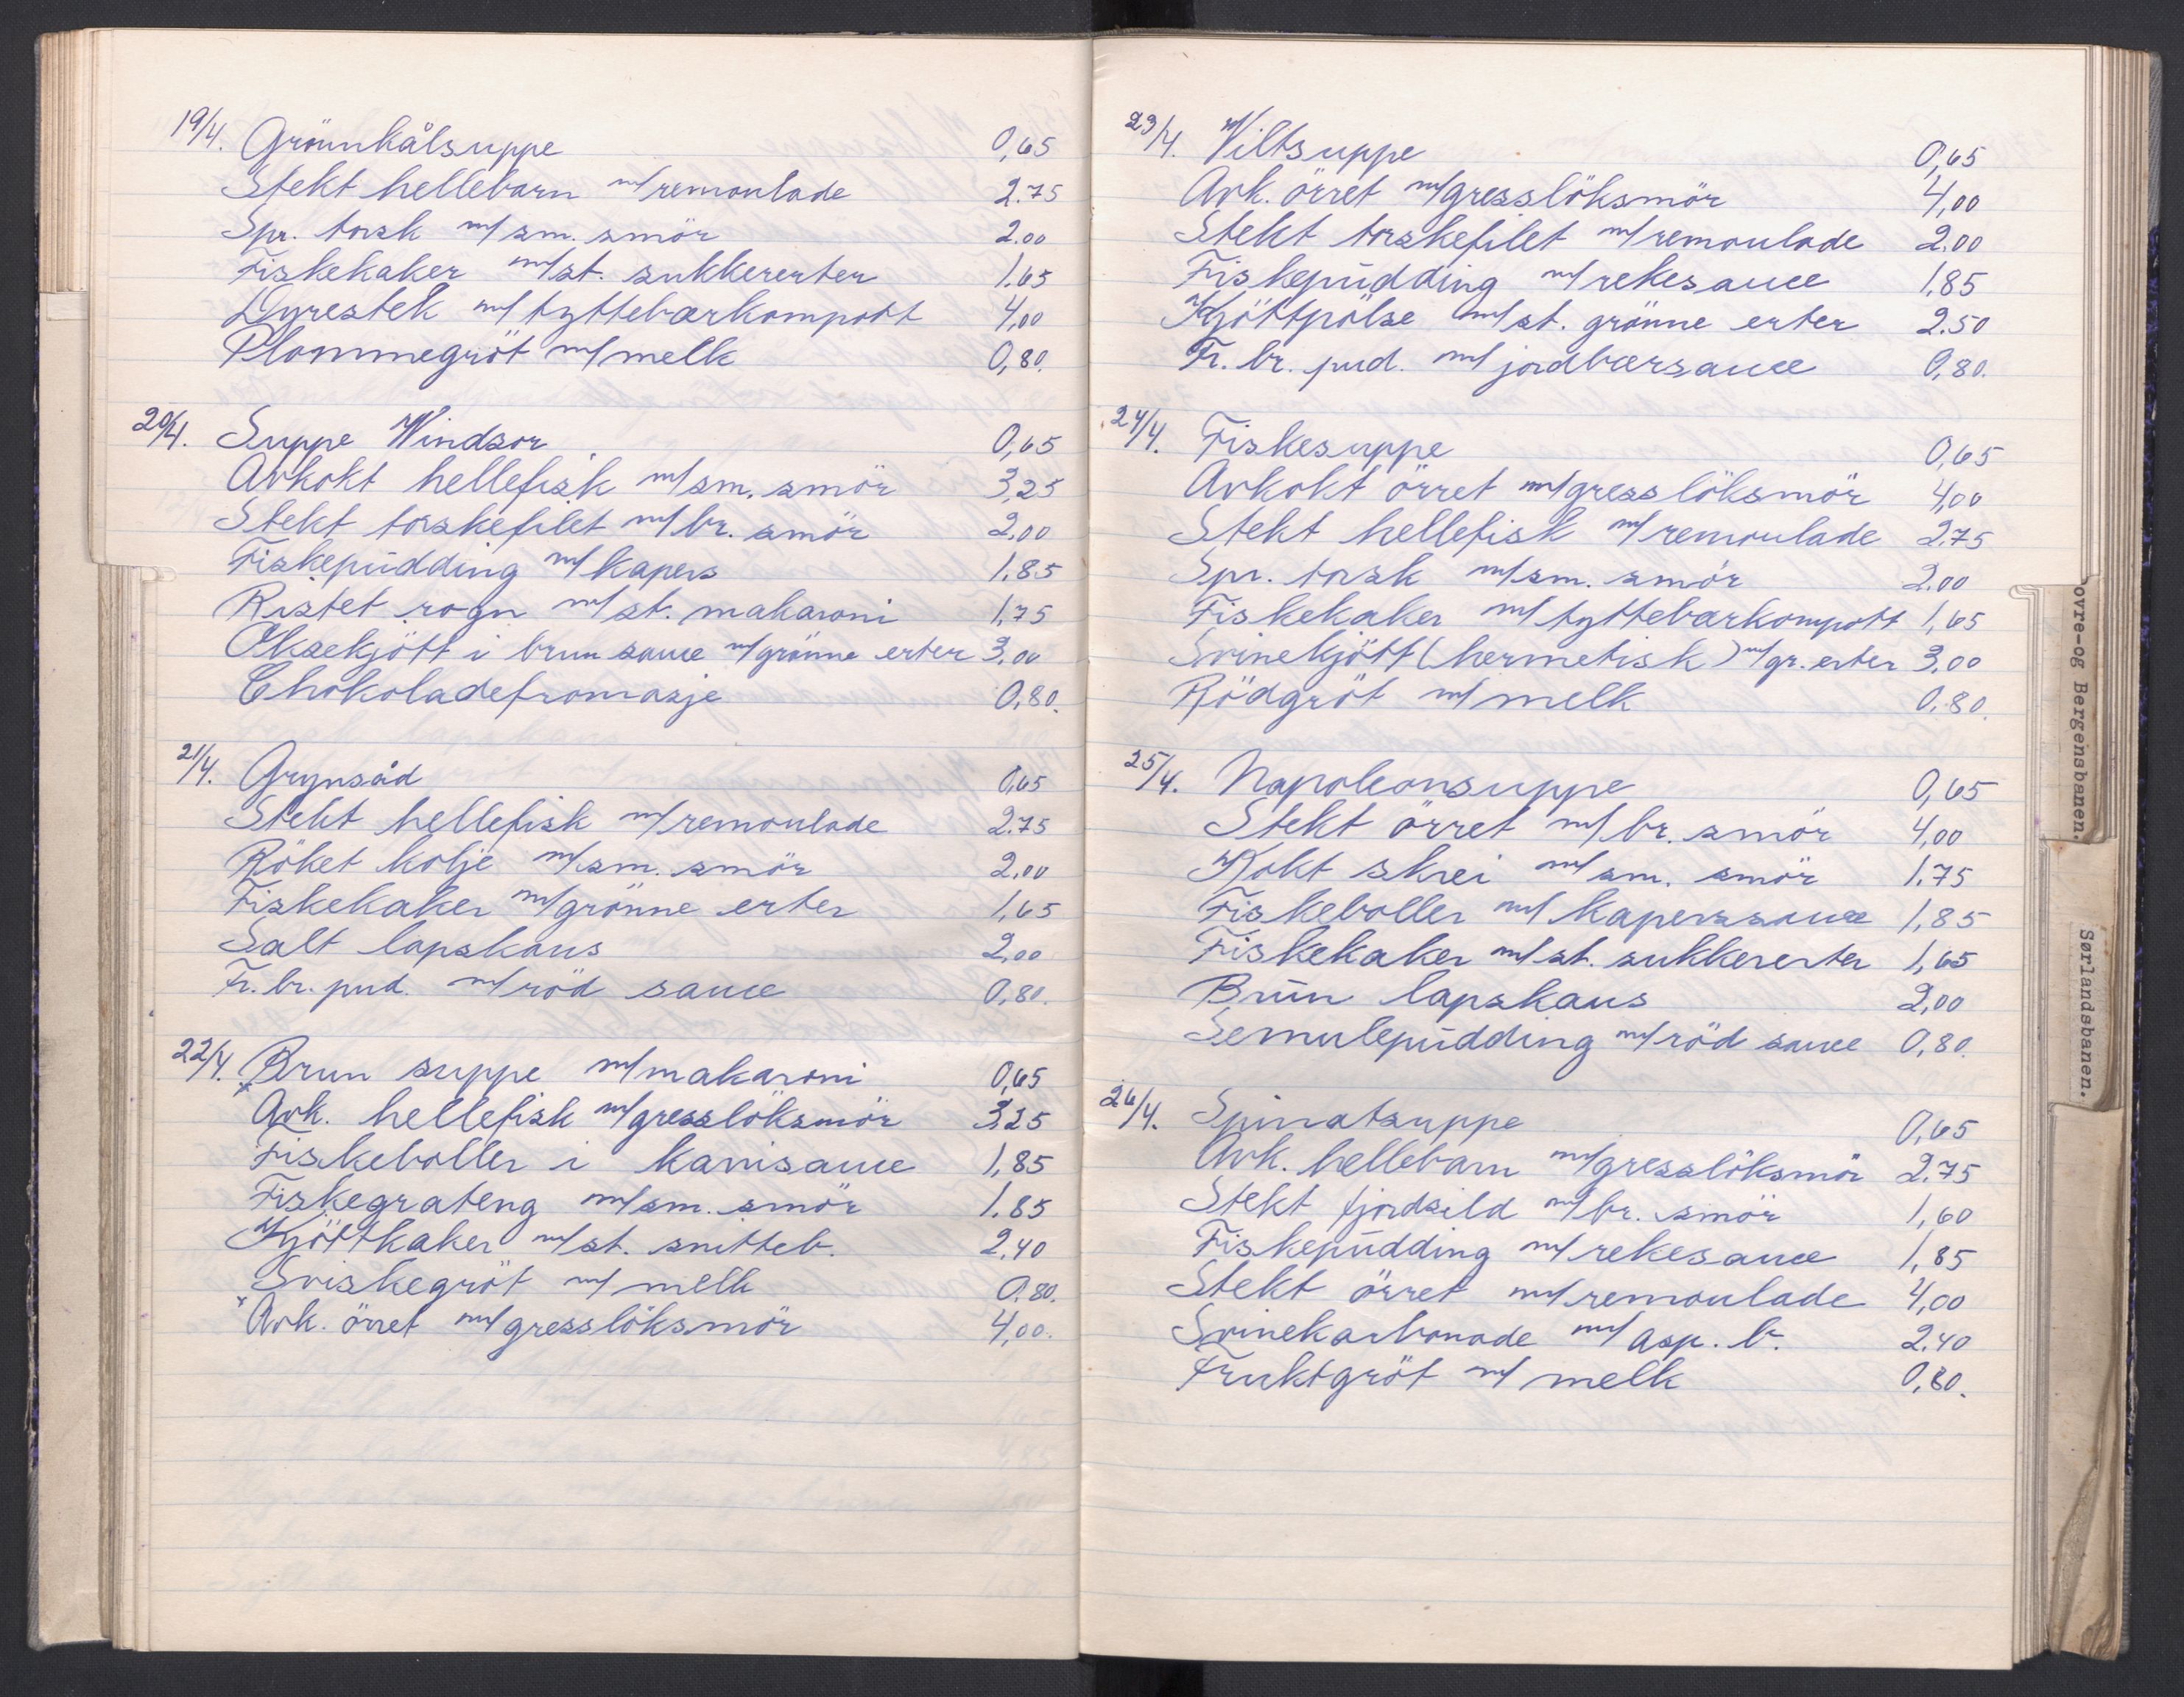 19/4. Grönnkålsuppe 0,65
Stekt hellebarn m/remoulade 2.75
Spr. torsk m/sm. smör 2.00
Fiskekaker m/st. sukkererter 1.65
Dyrestek m/tyttebærkompott 4,00
Plommegröt m/melk 0,80.
20/4. Suppe Windsor 0,65
Avkokt hellefisk m/sm. smör 3,25
Stekt torskefilet m/br. smör 2,00
Fiskepudding m/kapers 1.85
Ristet rogn m/st. makaroni 1,75
Oksekjött i brun sauce m/grönne erter 3.00
Chokoladefromasje 0,80.
21/4. Grynsåd 0,65
Stekt hellefisk m/remoulade 2.75
Röket kolje m/sm. smör 2.00
Fiskekaker m/grönne erter 1,65
Salt lapskaus 2,00
Fr. br. pud. m/röd sauce 0,80.
22/4. Brun suppe m/makaroni 0,65
* Avk. hellefisk m/gresslöksmör 3,25
Fiskeboller i karrisauce 1,85
Fiskegrateng m/sm. smör 1.85
Kjöttkaker m/st. snitteb. 2,40
Sviskegröt m/melk 0,80.
* Avk. örret m/gresslöksmör 4,00.
23/4. Viltsuppe 0,65
Avk. örret m/gresslöksmör 4,00
Stekt torskefilet m/remoulade 2.00
Fiskepudding m/rekesauce 1,85
Kjöttpölse m/st. grönne erter 2.50
Fr. br. pud. m/jordbærsauce 0,80.
24/4. Fiskesuppe 0,65
Avkokt örret m/gresslöksmör 4,00
Stekt hellefisk m/remoulade 2.75
Spr. torsk m/sm. smör 2.00
Fiskekaker m/tyttebærkompott 1,65
Svinekjött (hermetisk) m/gr. erter 3,00
Rödgröt m/melk 0.80.
25/4. Napoleonsuppe 0,65
Stekt örret m/br. smör 4,00
Kokt skrei m/sm. smör 1.75
Fiskeboller m/kaperssauce 1,85
Fiskekaker m/st. sukkererter 1,65
Brun lapskaus 2,00
Semulepudding m/röd sauce 0,80.
26/4. Spinatsuppe 0,65
Avk. hellebarn m/gresslöksmör 2.75
Stekt fjordsild m/br. smör 1,60
Fiskepudding m/rekesauce 1,85
Stekt örret m/remoulade 4,00
Svinekarbonade m/asp. b. 2.40
Fruktgröt m/melk 0,80.
ovre-og Bergensbanen.
Sørlandsbanen.